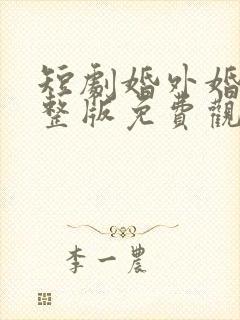 短劇婚外婚
整版免費觀
李一農